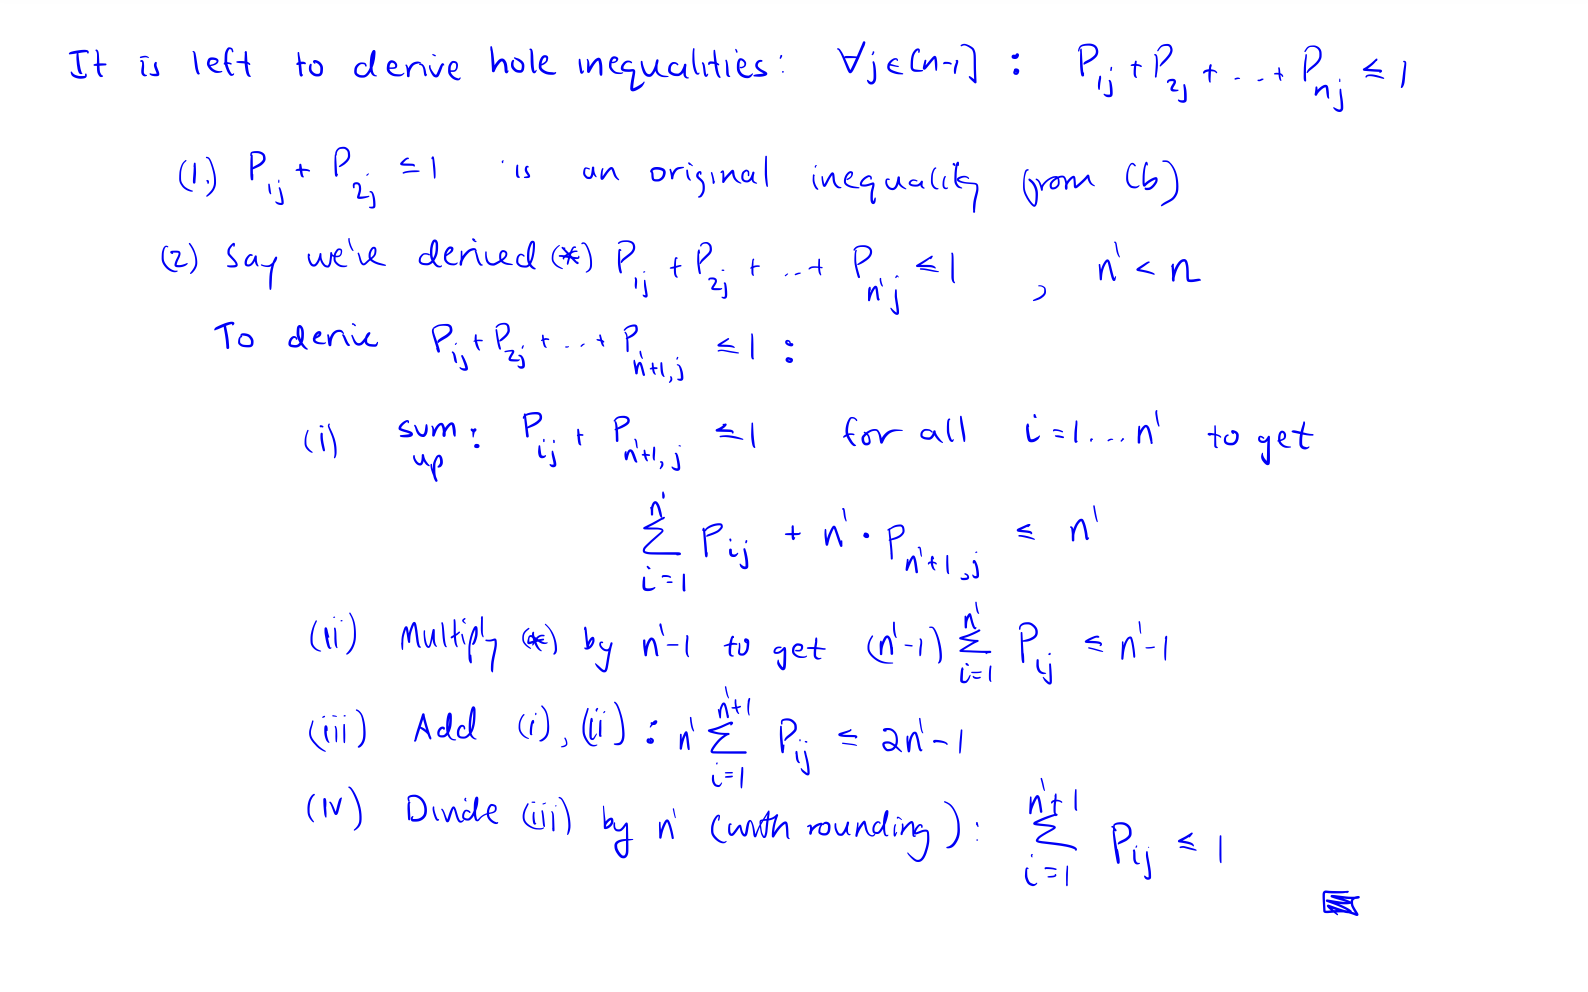 It is left to derive hole inequalities: ∀j∈[n-1] : P_{1j} + P_{2j} + ... + P_{nj} ≤ 1
(1.) P_{1j} + P_{2j} ≤ 1 is an original inequality from (b)
(2) Say we've derived (*) P_{1j} + P_{2j} + ... + P_{n'j} ≤ 1 , n' < n
To derive P_{1j} + P_{2j} + ... + P_{n'+1,j} ≤ 1 :
(i) sum up : P_{ij} + P_{n'+1,j} ≤ 1 for all i=1...n' to get
∑_{i=1}^{n'} P_{ij} + n' · P_{n'+1,j} ≤ n'
(ii) Multiply (*) by n'-1 to get (n'-1) ∑_{i=1}^{n'} P_{ij} ≤ n'-1
(iii) Add (i), (ii) : n' ∑_{i=1}^{n'+1} P_{ij} ≤ 2n'-1
(iv) Divide (iii) by n' (with rounding) : ∑_{i=1}^{n'+1} P_{ij} ≤ 1